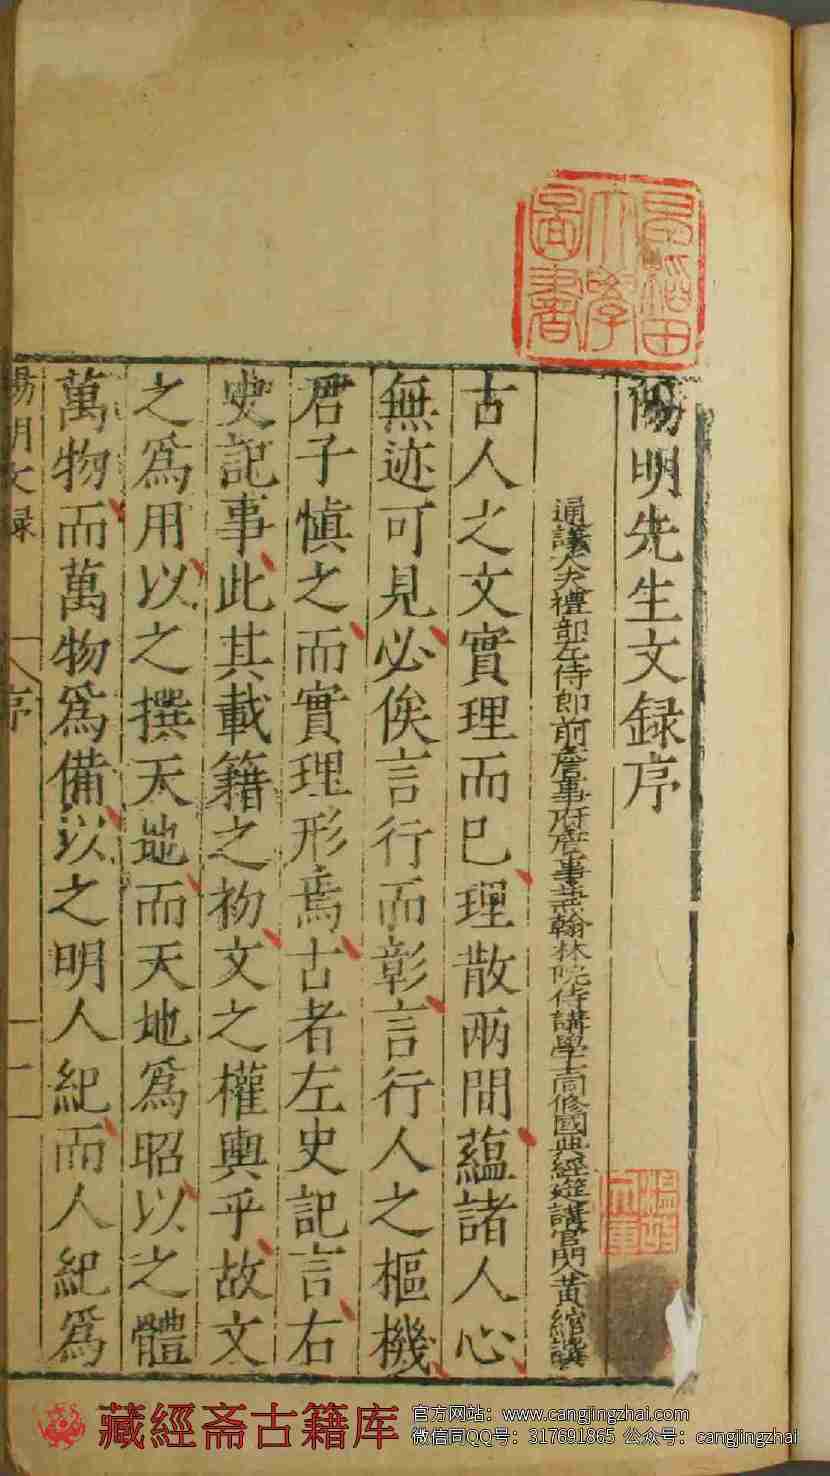 早稻田
大學
圖書
陽明先生文録序
通議大夫禮部左侍郎前詹事府詹事兼翰林院侍講學士同修國典經筵講官門人黄綰譔
古人之文實理而已理散兩間蘊諸人心
無迹可見必俟言行而彰言行人之樞機
君子慎之而實理形焉古者左史記言右
史記事此其載籍之初文之權輿乎故文
之爲用以之撰天地而天地爲昭以之體
萬物而萬物爲備以之明人紀而人紀爲
陽明文録
序
一
藏經斋古籍库
官方网站：www.cangjingzhai.com
微信同QQ号：317691865 公众号：cangjingzhai